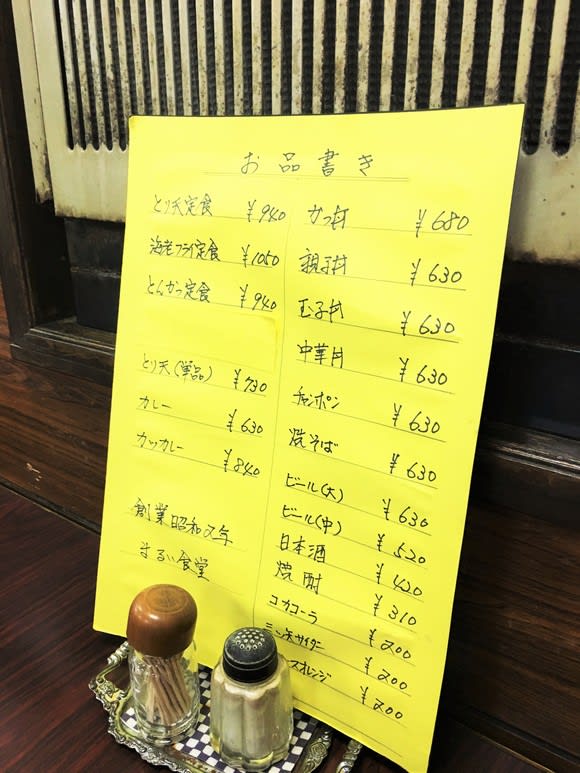 お品書き
とり天定食 ¥940
海老フライ定食 ¥1050
とんかつ定食 ¥940
とり天(単品) ¥730
カレー ¥630
カツカレー ¥840
創業昭和又年
まるい食堂
かつ丼 ¥680
親子丼 ¥630
玉子丼 ¥630
中華丼 ¥630
チャンポン ¥630
焼そば ¥630
ビール(大) ¥630
ビール(中) ¥520
日本酒 ¥420
焼酎 ¥310
コカコーラ ¥200
三ツ矢サイダー ¥200
スオレンジ ¥200